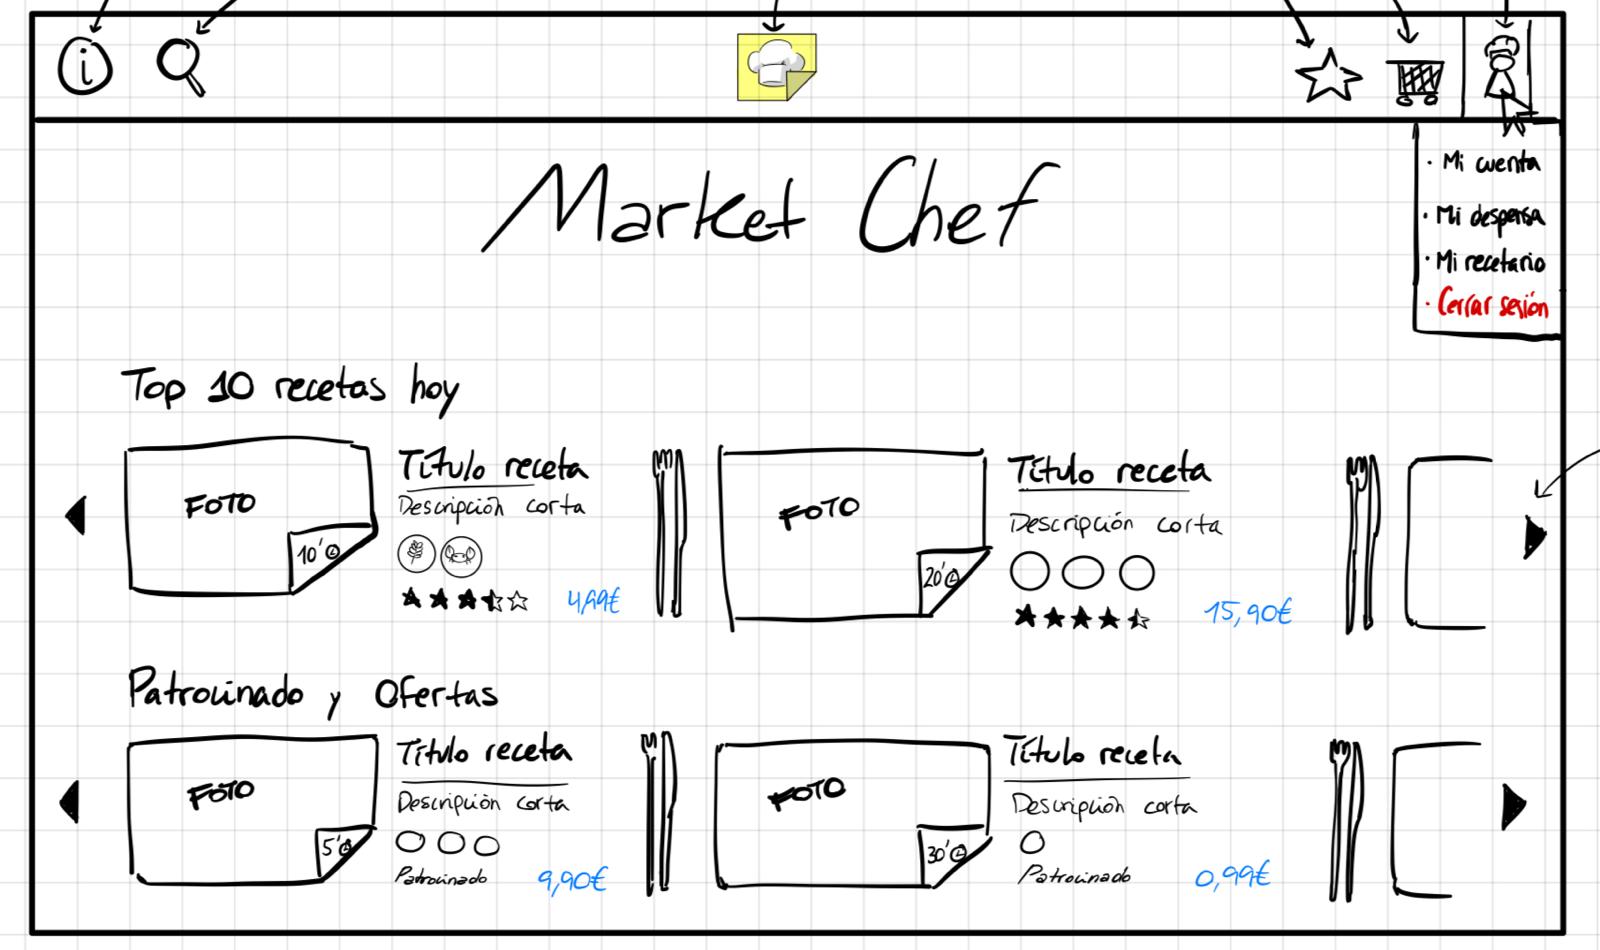 i
Market Chef
· Mi cuenta
· Mi despensa
· Mi recetario
· Cerrar sesión
Top 10 recetas hoy
FOTO
10'
Título receta
Descripción corta
4,99€
FOTO
20'
Título receta
Descripción corta
15,90€
Patrocinado y Ofertas
FOTO
5'
Título receta
Descripción corta
Patrocinado
9,90€
FOTO
30'
Título receta
Descripción corta
Patrocinado
0,99€